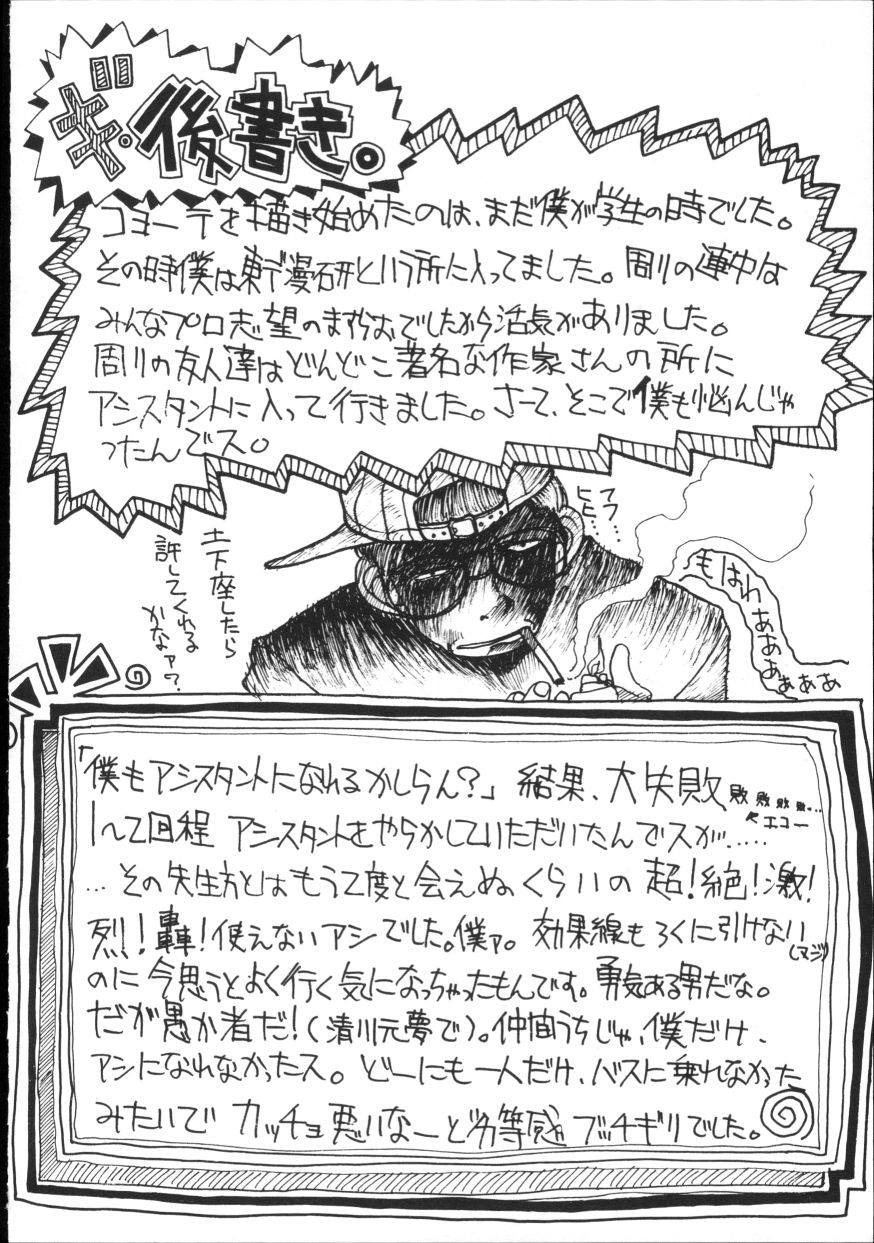 ザ・後書き。
コヨーテを描き始めたのは、まだ僕が学生の時でした。
その時僕は東デ漫研という所に入ってました。周りの連中は
みんなプロ志望のますらおでしたから活気がありました。
周りの友人達はどんどこ著名な作家さんの所に
アシスタントに入って行きました。さーて、そこで僕も悩んじゃ
ったんでス。
ヒヒ…
フフ…
土下座したら
許してくれる
かなァ?
もはわ
あああ
ぁぁああ
「僕もアシスタントになれるかしらん?」結果、大失敗敗敗敗敗…
↖エコー
1〜2回程 アシスタントをやらかしていただいたんでスが……
…その先生方とはもう2度と会えぬくらいの 超!絶!激!
烈!轟!使えないアシでした。僕ァ。効果線もろくに引けない
(マジ)
のに今思うとよく行く気になっちゃったもんです。勇気ある男だな。
だが愚か者だ!(清川元夢で)。仲間うちじゃ、僕だけ、
アシになれなかったス。どーにも一人だけ、バスに乗れなかった
みたいで カッチョ悪いなーと劣等感ブッチギリでした。